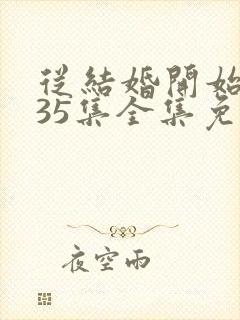 從結婚開始
35集全集免
夜空雨